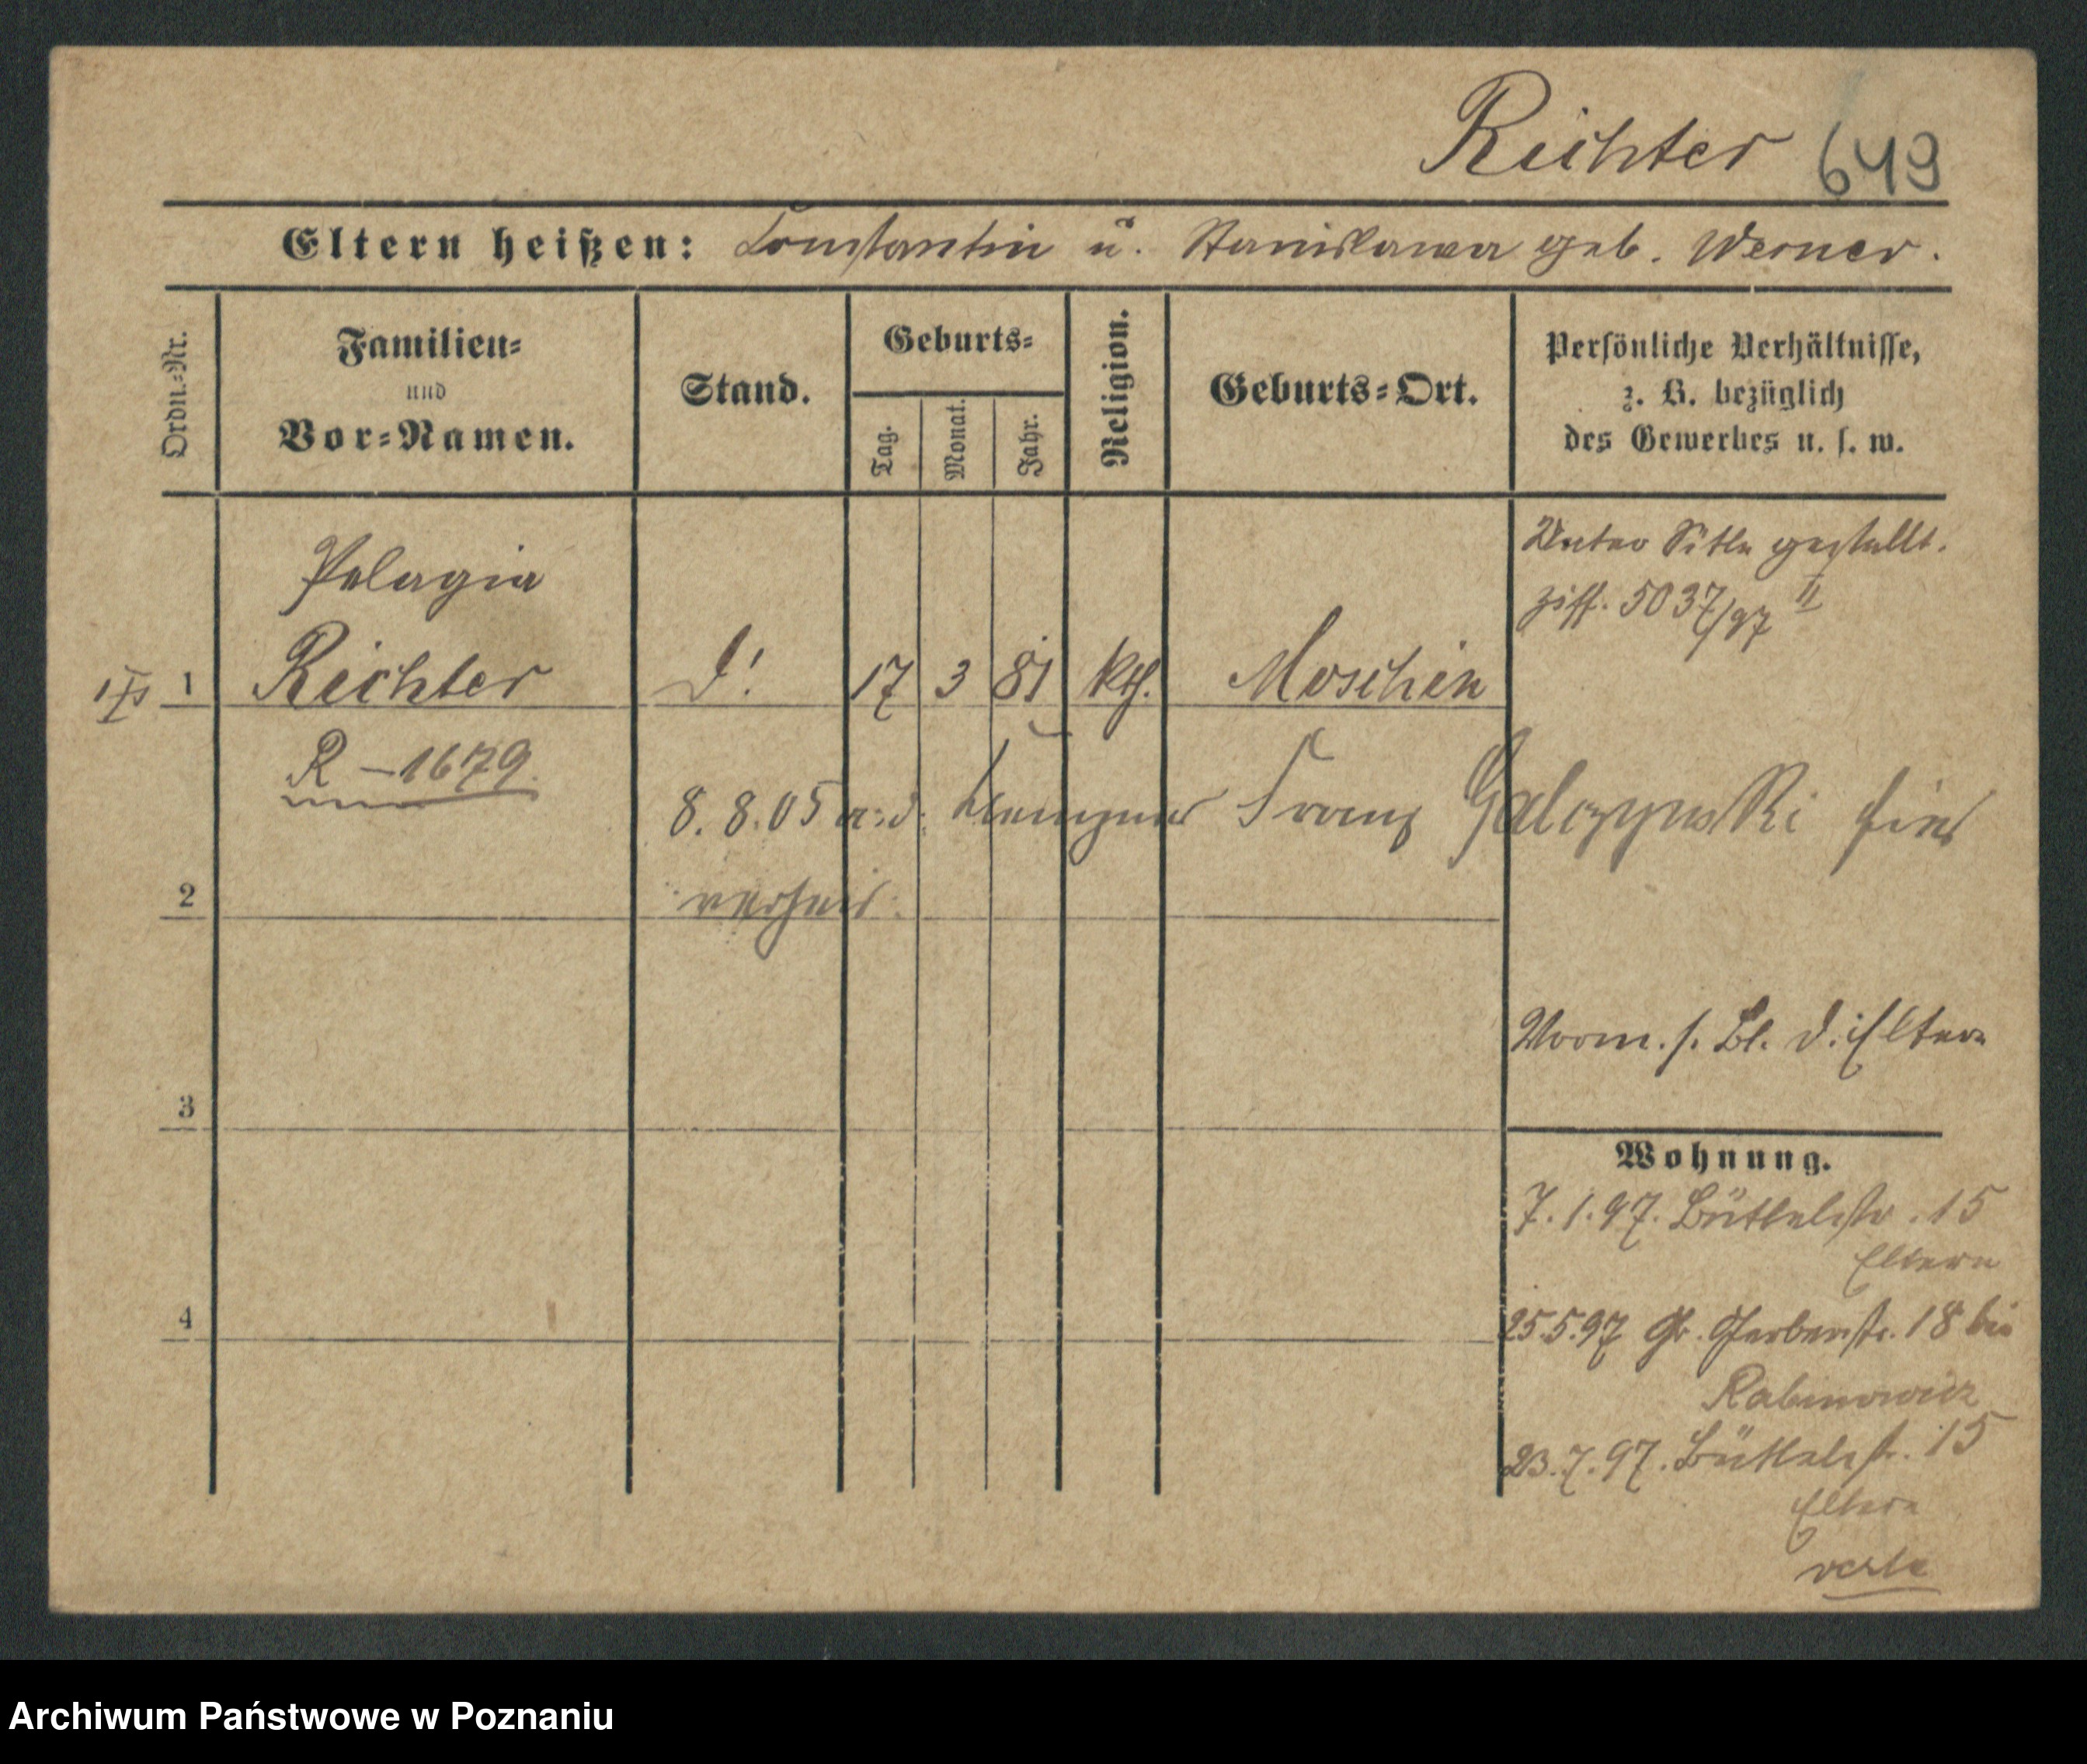 Richter 649
Eltern heißen: Constantin u. Stanislawa geb. Werner.
Ordn.-Nr.
Familien-
und
Vor-Namen.
Stand.
Geburts-
Tag.
Monat.
Jahr.
Religion.
Geburts-Ort.
Persönliche Verhältnisse,
z. B. bezüglich
des Gewerbes u. s. w.
Unter Sitte gestellt.
ziff. 5037/97 II
Pelagia
1 Richter d! 17 3 81 kth. Moschin
R – 1679.
8.8.05 m. d. Klempner Franz Galczynski hier
verheir.
2
Vorm. s. Bl. d. Eltern
3
Wohnung.
7.1.97. Büttelstr. 15
Eltern
25.5.97 Gr. Gerberstr. 18 bei
4
Rabinowicz
23.7.97. Büttelstr. 15
Eltern
verte
Archiwum Państwowe w Poznaniu